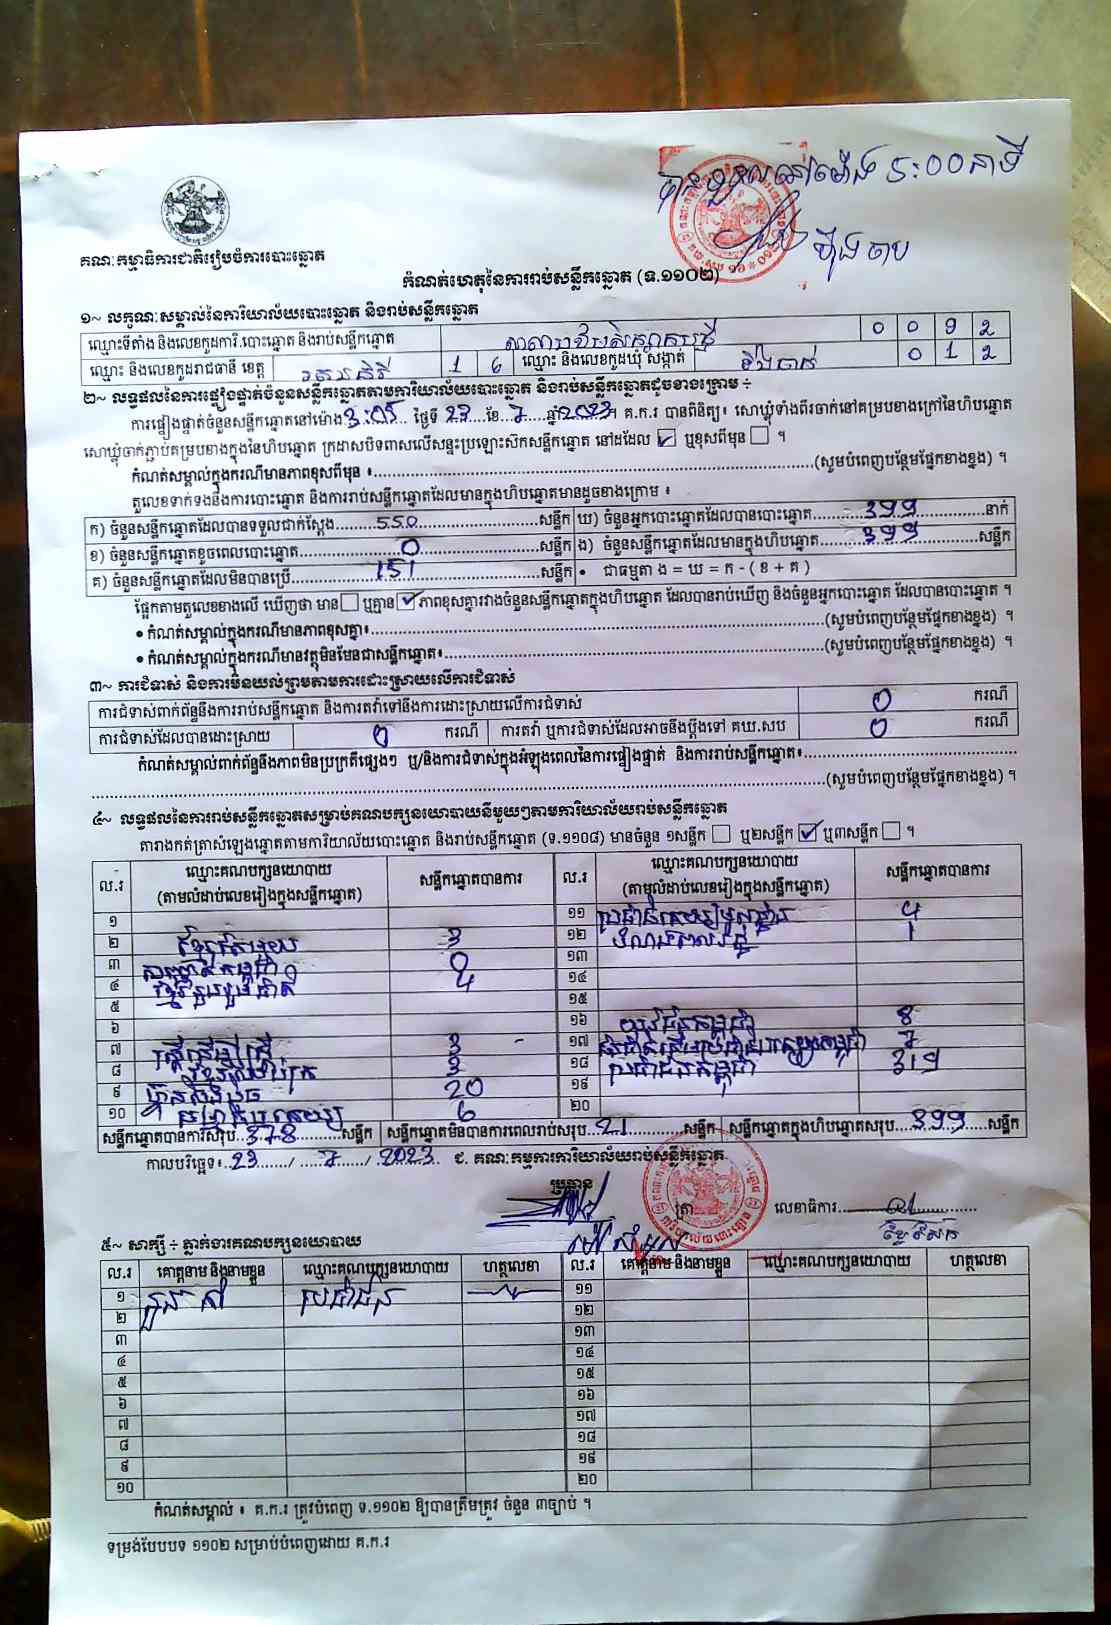 បានទទួលនៅម៉ោង 5:00នាទី
ហ៊ីង ចាប
គណៈកម្មាធិការជាតិរៀបចំការបោះឆ្នោត
កំណត់ហេតុនៃការរាប់សន្លឹកឆ្នោត (ទ.១១០២)
១~ លក្ខណៈសម្គាល់នៃការិយាល័យបោះឆ្នោត និងរាប់សន្លឹកឆ្នោត
ឈ្មោះទីតាំង និងលេខកូដការិ.បោះឆ្នោត និងរាប់សន្លឹកឆ្នោត 0 0 9 2
ឈ្មោះ និងលេខកូដរាជធានី ខេត្ត រតនគិរី 1 6 ឈ្មោះ និងលេខកូដឃុំ សង្កាត់ ទីងចាក់ 0 1 2
២~ លទ្ធផលនៃការផ្ទៀងផ្ទាត់ចំនួនសន្លឹកឆ្នោតតាមការិយាល័យបោះឆ្នោត និងរាប់សន្លឹកឆ្នោតដូចខាងក្រោម ÷
ការផ្ទៀងផ្ទាត់ចំនួនសន្លឹកឆ្នោតនៅម៉ោង 3:05 ថ្ងៃទី 23 ខែ 7 ឆ្នាំ 2023។ គ.ក.រ បានពិនិត្យ៖ សោឃ្លុំទាំងពីរចាក់នៅគម្របខាងក្រៅនៃហិបឆ្នោត
សោឃ្លុំចាក់ភ្ជាប់គម្របខាងក្នុងនៃហិបឆ្នោត ក្រដាសបិទពាសលើសន្ទះប្រឡោះស៊កសន្លឹកឆ្នោត នៅដដែល ☑ ឬខុសពីមុន ☐ ។
កំណត់សម្គាល់ក្នុងករណីមានភាពខុសពីមុន ៖ (សូមបំពេញបន្ថែមផ្នែកខាងខ្នង) ។
តួលេខទាក់ទងនឹងការបោះឆ្នោត និងការរាប់សន្លឹកឆ្នោតដែលមានក្នុងហិបឆ្នោតមានដូចខាងក្រោម ៖
ក) ចំនួនសន្លឹកឆ្នោតដែលបានទទួលជាក់ស្តែង 550 សន្លឹក ឃ) ចំនួនអ្នកបោះឆ្នោតដែលបានបោះឆ្នោត 399 នាក់
ខ) ចំនួនសន្លឹកឆ្នោតខូចពេលបោះឆ្នោត 0 សន្លឹក ង) ចំនួនសន្លឹកឆ្នោតដែលមានក្នុងហិបឆ្នោត 399 សន្លឹក
គ) ចំនួនសន្លឹកឆ្នោតដែលមិនបានប្រើ 151 សន្លឹក • ជាធម្មតា ង = ឃ = ក - ( ខ + គ )
ផ្អែកតាមតួលេខខាងលើ ឃើញថា មាន ☐ ឬគ្មាន ☑ ភាពខុសគ្នារវាងចំនួនសន្លឹកឆ្នោតក្នុងហិបឆ្នោត ដែលបានរាប់ឃើញ និងចំនួនអ្នកបោះឆ្នោត ដែលបានបោះឆ្នោត ។
• កំណត់សម្គាល់ក្នុងករណីមានភាពខុសគ្នា៖ (សូមបំពេញបន្ថែមផ្នែកខាងខ្នង) ។
• កំណត់សម្គាល់ក្នុងករណីមានវត្ថុមិនមែនជាសន្លឹកឆ្នោត៖ (សូមបំពេញបន្ថែមផ្នែកខាងខ្នង) ។
៣~ ការជំទាស់ និងការមិនយល់ព្រមតាមការដោះស្រាយលើការជំទាស់
ការជំទាស់ពាក់ព័ន្ធនឹងការរាប់សន្លឹកឆ្នោត និងការតវ៉ាទៅនឹងការដោះស្រាយលើការជំទាស់ 0 ករណី
ការជំទាស់ដែលបានដោះស្រាយ 0 ករណី ការតវ៉ា ឬការជំទាស់ដែលអាចនឹងប្តឹងទៅ គឃ.សប 0 ករណី
កំណត់សម្គាល់ពាក់ព័ន្ធនឹងភាពមិនប្រក្រតីផ្សេងៗ ឬ/និងការជំទាស់ក្នុងអំឡុងពេលនៃការផ្ទៀងផ្ទាត់ និងការរាប់សន្លឹកឆ្នោត៖
(សូមបំពេញបន្ថែមផ្នែកខាងខ្នង) ។
៤~ លទ្ធផលនៃការរាប់សន្លឹកឆ្នោតសម្រាប់គណបក្សនយោបាយនីមួយៗតាមការិយាល័យរាប់សន្លឹកឆ្នោត
តារាងកត់ត្រាសំឡេងឆ្នោតតាមការិយាល័យបោះឆ្នោត និងរាប់សន្លឹកឆ្នោត (ទ.១១០៨) មានចំនួន ១សន្លឹក ☐ ឬ២សន្លឹក ☑ ឬ៣សន្លឹក ☐ ។
ល.រ ឈ្មោះគណបក្សនយោបាយ (តាមលំដាប់លេខរៀងក្នុងសន្លឹកឆ្នោត) សន្លឹកឆ្នោតបានការ ល.រ ឈ្មោះគណបក្សនយោបាយ (តាមលំដាប់លេខរៀងក្នុងសន្លឹកឆ្នោត) សន្លឹកឆ្នោតបានការ
១ ១១ 4
២ ខ្មែរតែមួយ 3 ១២ 1
៣ 0 ១៣
៤ ខ្មែររួបរួមជាតិ 4 ១៤
៥ ១៥
៦ ១៦ យុវជនកម្ពុជា 8
៧ 3 ១៧ 7
៨ 3 ១៨ ប្រជាជនកម្ពុជា 319
៩ ហ៊្វុនស៊ិនប៉ិច 20 ១៩
១០ 6 ២០
សន្លឹកឆ្នោតបានការសរុប 378 សន្លឹក សន្លឹកឆ្នោតមិនបានការពេលរាប់សរុប 21 សន្លឹក សន្លឹកឆ្នោតក្នុងហិបឆ្នោតសរុប 399 សន្លឹក
កាលបរិច្ឆេទ៖ 23 / 7 / 2023 ជ. គណៈកម្មការការិយាល័យរាប់សន្លឹកឆ្នោត
ប្រធាន
ត្រា លេខាធិការ
៥~ សាក្សី ÷ ភ្នាក់ងារគណបក្សនយោបាយ
ល.រ គោត្តនាម និងនាមខ្លួន ឈ្មោះគណបក្សនយោបាយ ហត្ថលេខា ល.រ គោត្តនាម និងនាមខ្លួន ឈ្មោះគណបក្សនយោបាយ ហត្ថលេខា
១ ប្រជាជន ១១
២ ១២
៣ ១៣
៤ ១៤
៥ ១៥
៦ ១៦
៧ ១៧
៨ ១៨
៩ ១៩
១០ ២០
កំណត់សម្គាល់ ៖ គ.ក.រ ត្រូវបំពេញ ទ.១១០២ ឱ្យបានត្រឹមត្រូវ ចំនួន ៣ច្បាប់ ។
ទម្រង់បែបបទ ១១០២ សម្រាប់បំពេញដោយ គ.ក.រ